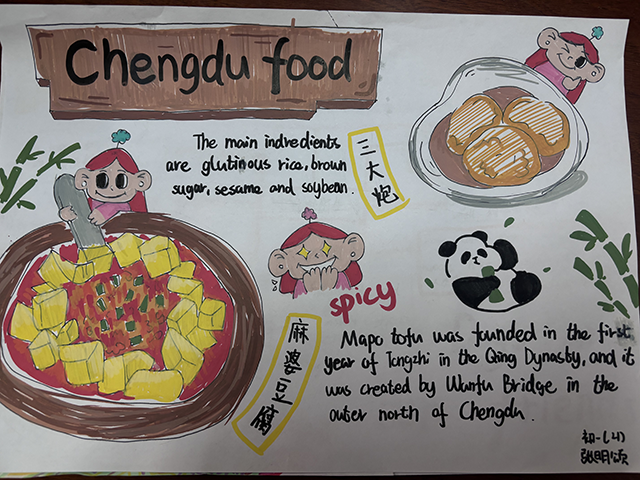 Chengdu food
The main indredients
are glutinous rice, brown
sugar, sesame and soybean.
三大炮
spicy
麻婆豆腐
Mapo tofu was founded in the first
year of Tongzhi in the Qing Dynasty, and it
was created by Wanfu Bridge in the
outer north of Chengdu.
初一(4)